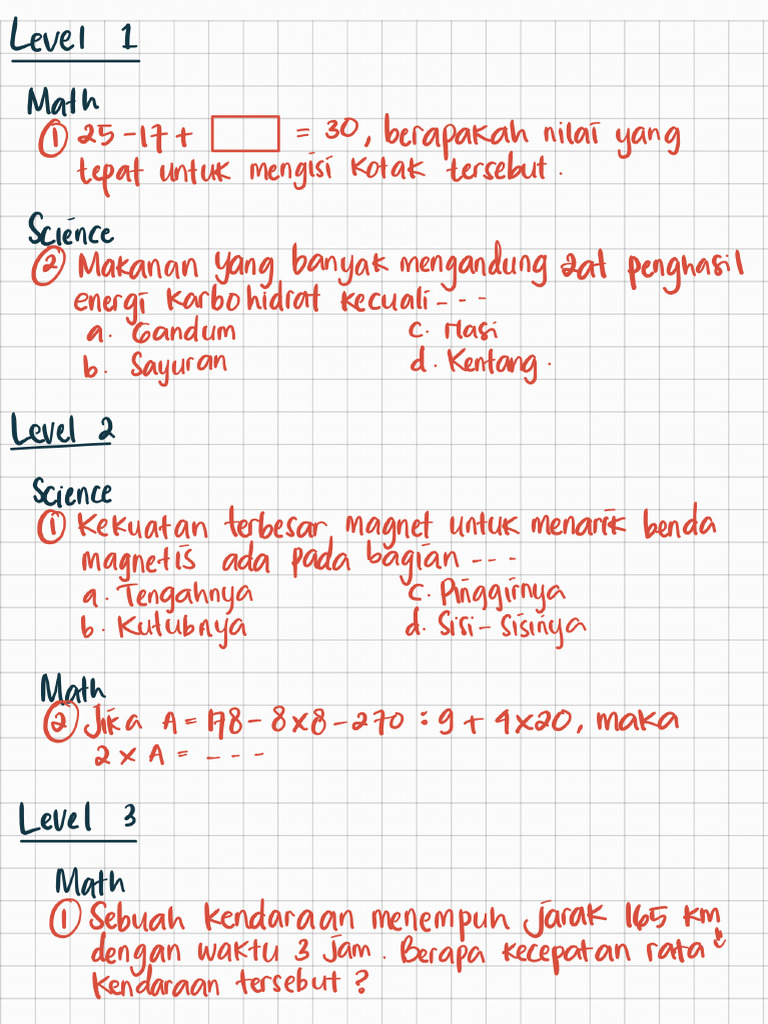 Level 1
Math
① 25 - 17 + = 30, berapakah nilai yang
tepat untuk mengisi kotak tersebut.
Science
② Makanan yang banyak mengandung zat penghasil
energi karbohidrat kecuali - - -
a. Gandum c. Nasi
b. Sayuran d. Kentang.
Level 2
Science
① Kekuatan terbesar magnet untuk menarik benda
magnetis ada pada bagian - - -
a. Tengahnya c. Pinggirnya
b. Kutubnya d. Sisi - sisinya
Math
② Jika A = 178 - 8 x 8 - 270 : 9 + 4 x 20, maka
2 x A = - - -
Level 3
Math
① Sebuah kendaraan menempuh jarak 165 km
dengan waktu 3 jam. Berapa kecepatan rata
kendaraan tersebut ?